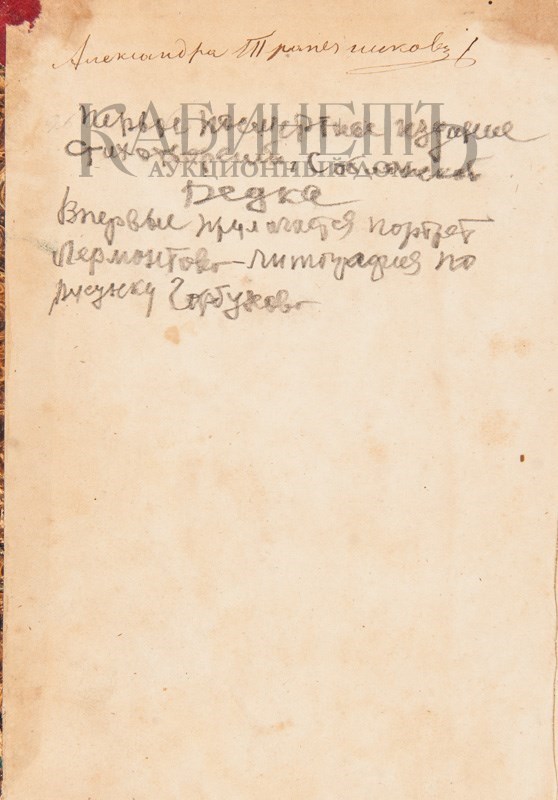 Александра Трапезникова
КАБИНЕТЪ
АУКЦИОННЫЙ ДОМ
Первые посмертное издание
стихотворений.
Редка
Впервые прилагается портрет
Лермонтова – литография по
рисунку Горбунова